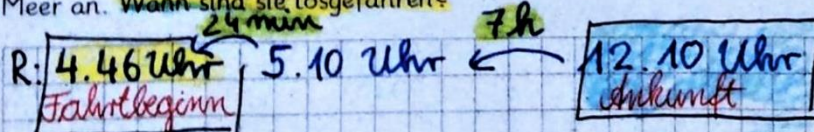 Meer an. Wann sind sie losgefahren?
24 min 7h
R: 4.46 Uhr, 5.10 Uhr ← 12.10 Uhr
Fahrtbeginn Ankunft